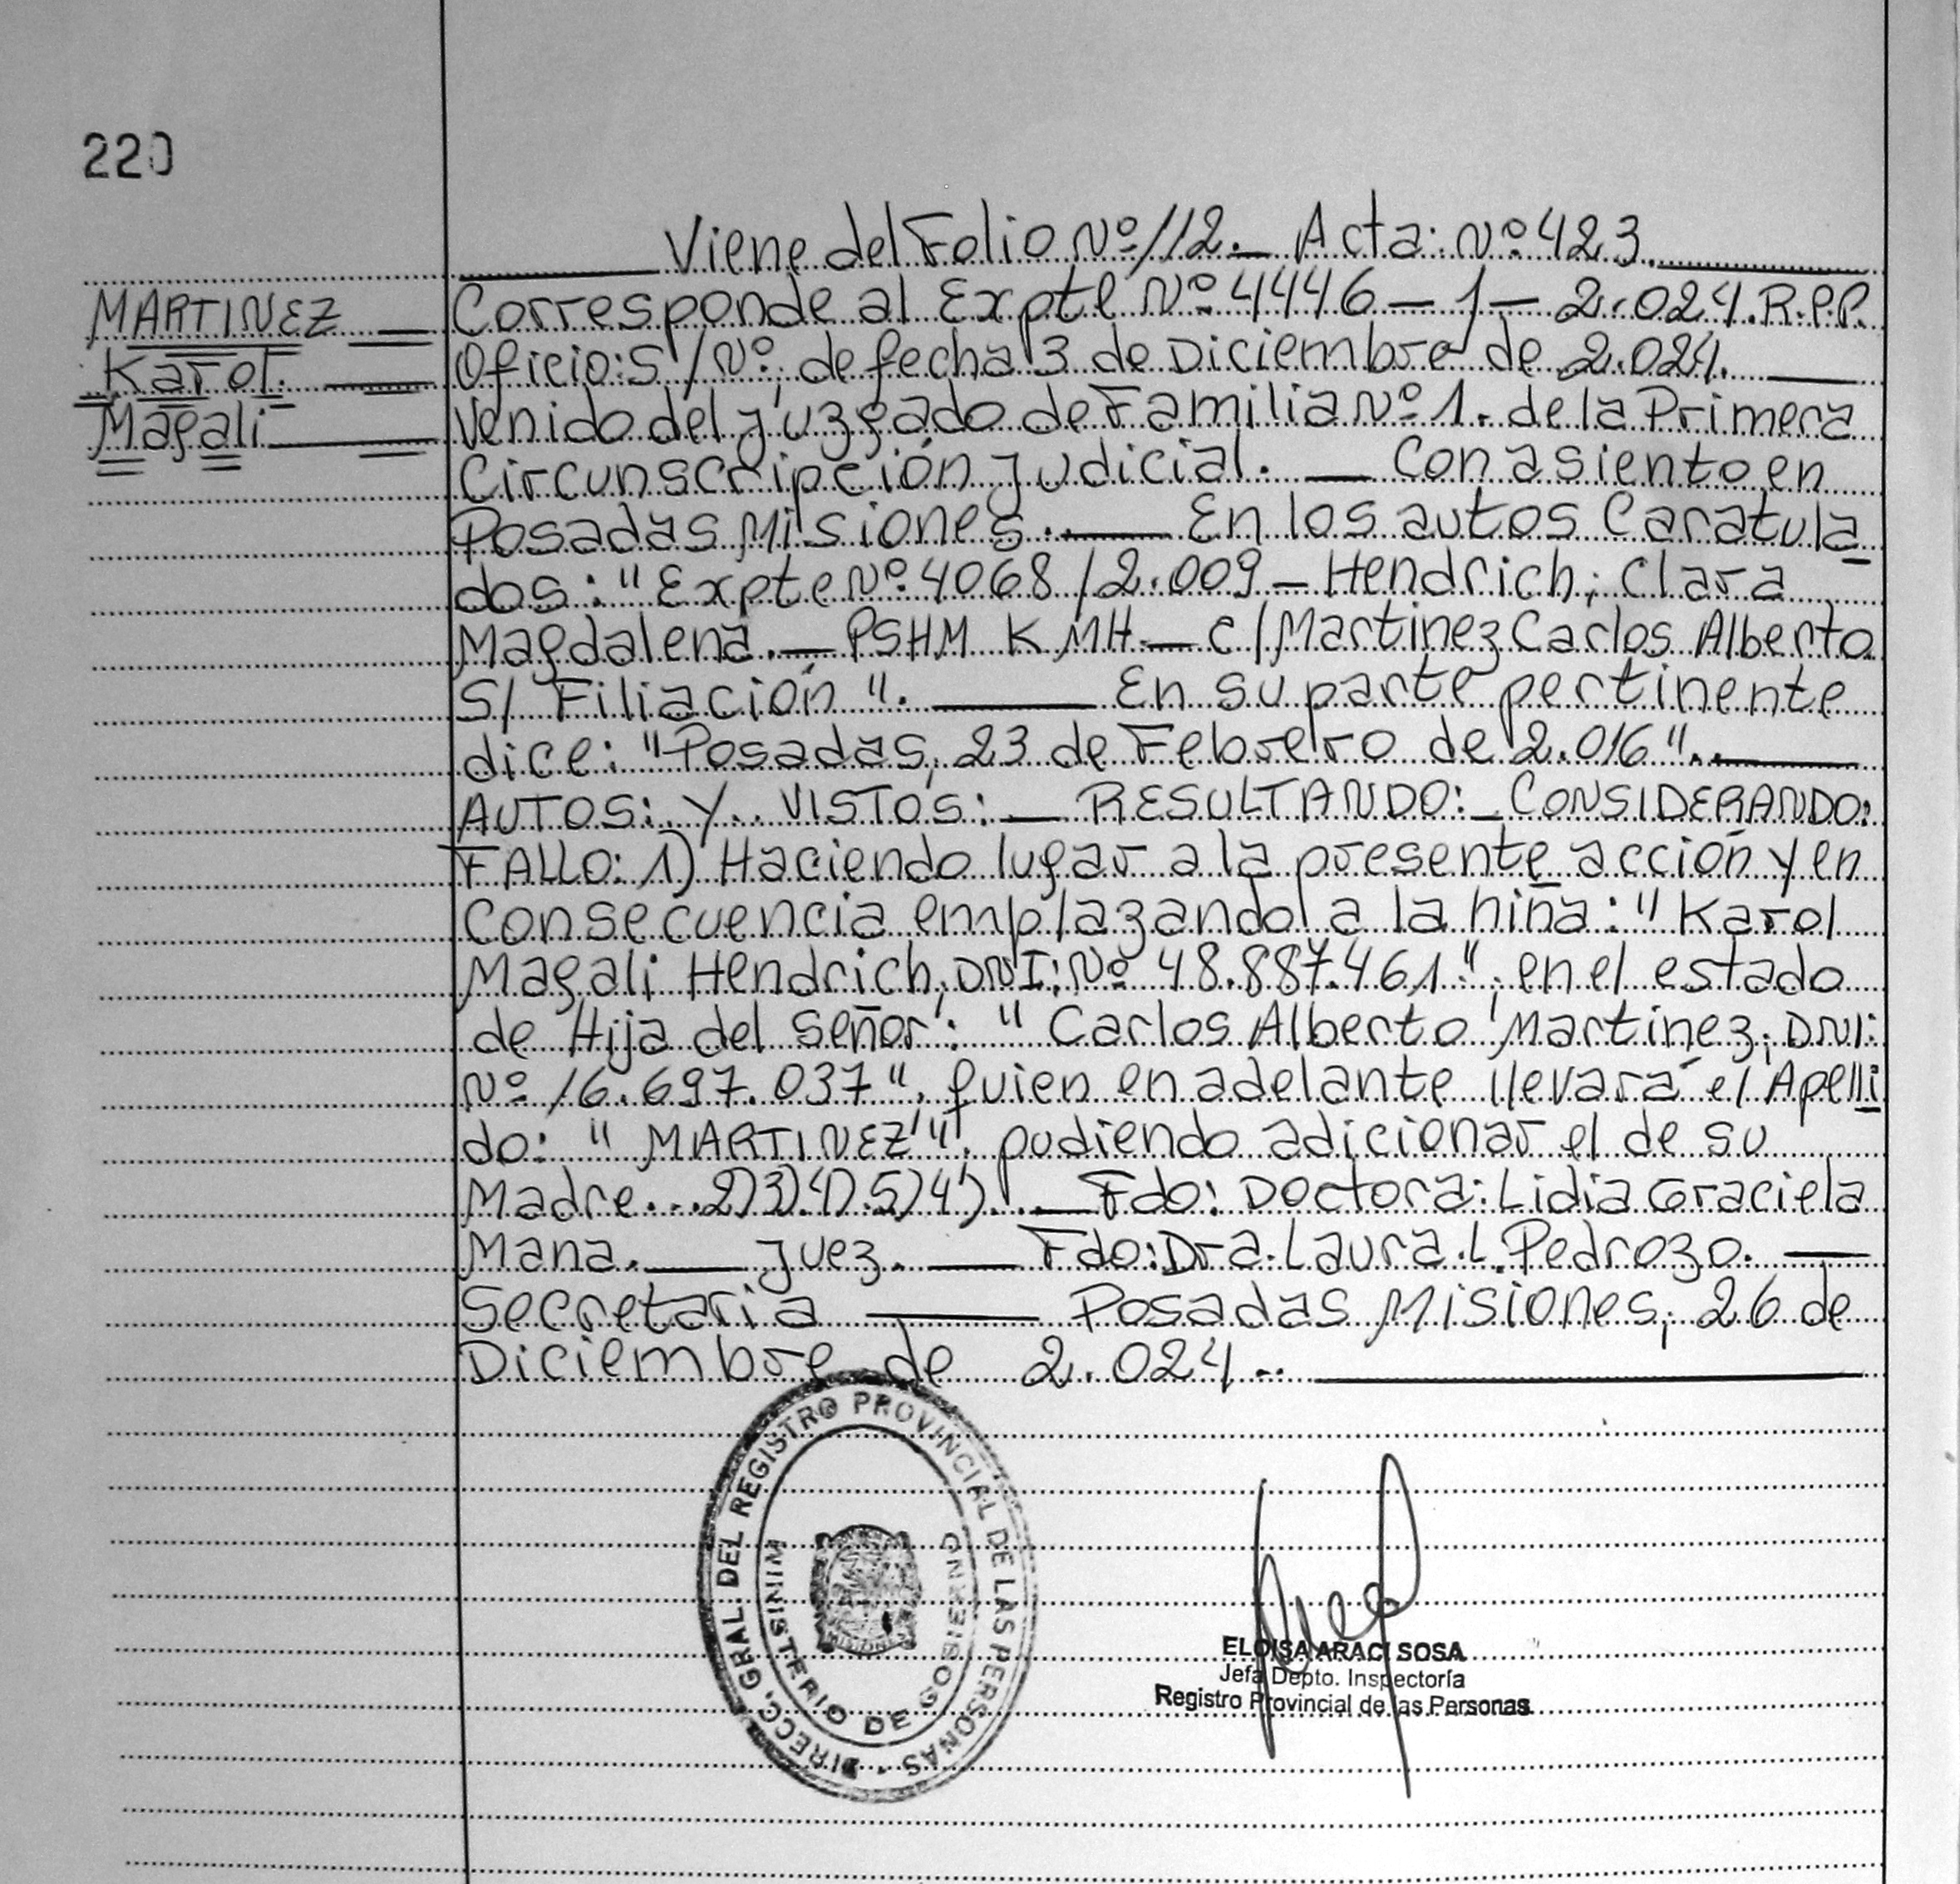 220
Viene del Folio Nº 112.— Acta: Nº 423.
MARTINEZ
Karol
Magali
Corresponde al Expte Nº 4446 — 1 — 2.024. R.P.P.
Oficio: S/Nº; de fecha 3 de Diciembre de 2.024.
venido del Juzgado de Familia Nº 1. de la Primera
Circunscripción Judicial. — Con asiento en
Posadas Misiones. — En los autos Caratula
dos: "Expte Nº 4068/2.009 — Hendrich; Clara
Magdalena. — PSHM KMH — c/ Martinez Carlos Alberto
S/ Filiación". — En su parte pertinente
dice: "Posadas, 23 de Febrero de 2.016". —
AUTOS: Y VISTOS: — RESULTANDO: — CONSIDERANDO:
FALLO: 1) Haciendo lugar a la presente acción y en
Consecuencia emplazando a la niña: "Karol
Magali Hendrich; DNI: Nº 48.887.461"; en el estado
de Hija del Señor: "Carlos Alberto Martinez; DNI:
Nº 16.697.037". quien en adelante llevará el Apelli
do: "MARTINEZ". pudiendo adicionar el de su
Madre...2)3)4)5)4). — Fdo: Doctora: Lidia Graciela
Mana. — Juez. — Fdo: Dra. Laura L. Pedrozo. —
Secretaria — Posadas Misiones; 26 de
Diciembre de 2.024..
DIRECC. GRAL. DEL REGISTRO PROVINCIAL DE LAS PERSONAS
MINISTERIO DE GOBIERNO
MISIONES
ELOISA ARACI SOSA
Jefa Depto. Inspectoría
Registro Provincial de las Personas